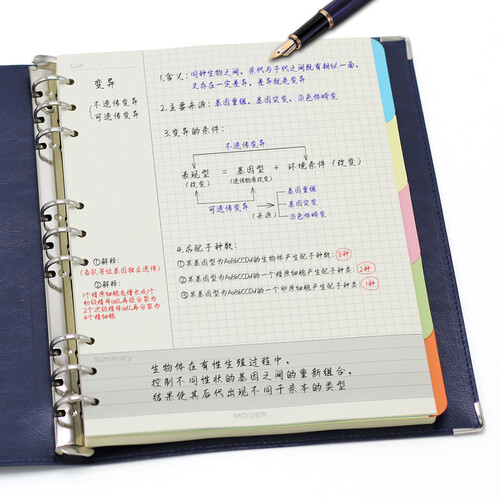 Cue
变异
不遗传变异
可遗传变异
1.含义：同种生物之间，亲代与子代之间既有相似一面，
又存在一定差异，差异就是变异
2.主要来源：基因重组，基因突变，染色体畸变
3.变异的条件：
不遗传变异
表现型 = 基因型 + 环境条件（改变）
（改变） （遗传物质改变）
可遗传变异 （来源） 基因重组
基因突变
染色体畸变
4.求配子种数：
①某基因型为AaBbCCDd的生物体产生配子种数：8种
②某基因型为AaBbCCDd的一个精原细胞产生配子种类：2种
③某基因型为AaBbCCDd的一个卵原细胞产生配子种类：1种
①解释：
（各队等位基因独立遗传）
②解释：
1个精原细胞先增长成1个
初级精母cell再径分裂为
2个次级精母cell再分裂为
4个精细胞
Summary
生物体在有性生殖过程中，
控制不同性状的基因之间的重新组合，
结果使其后代出现不同于亲本的类型